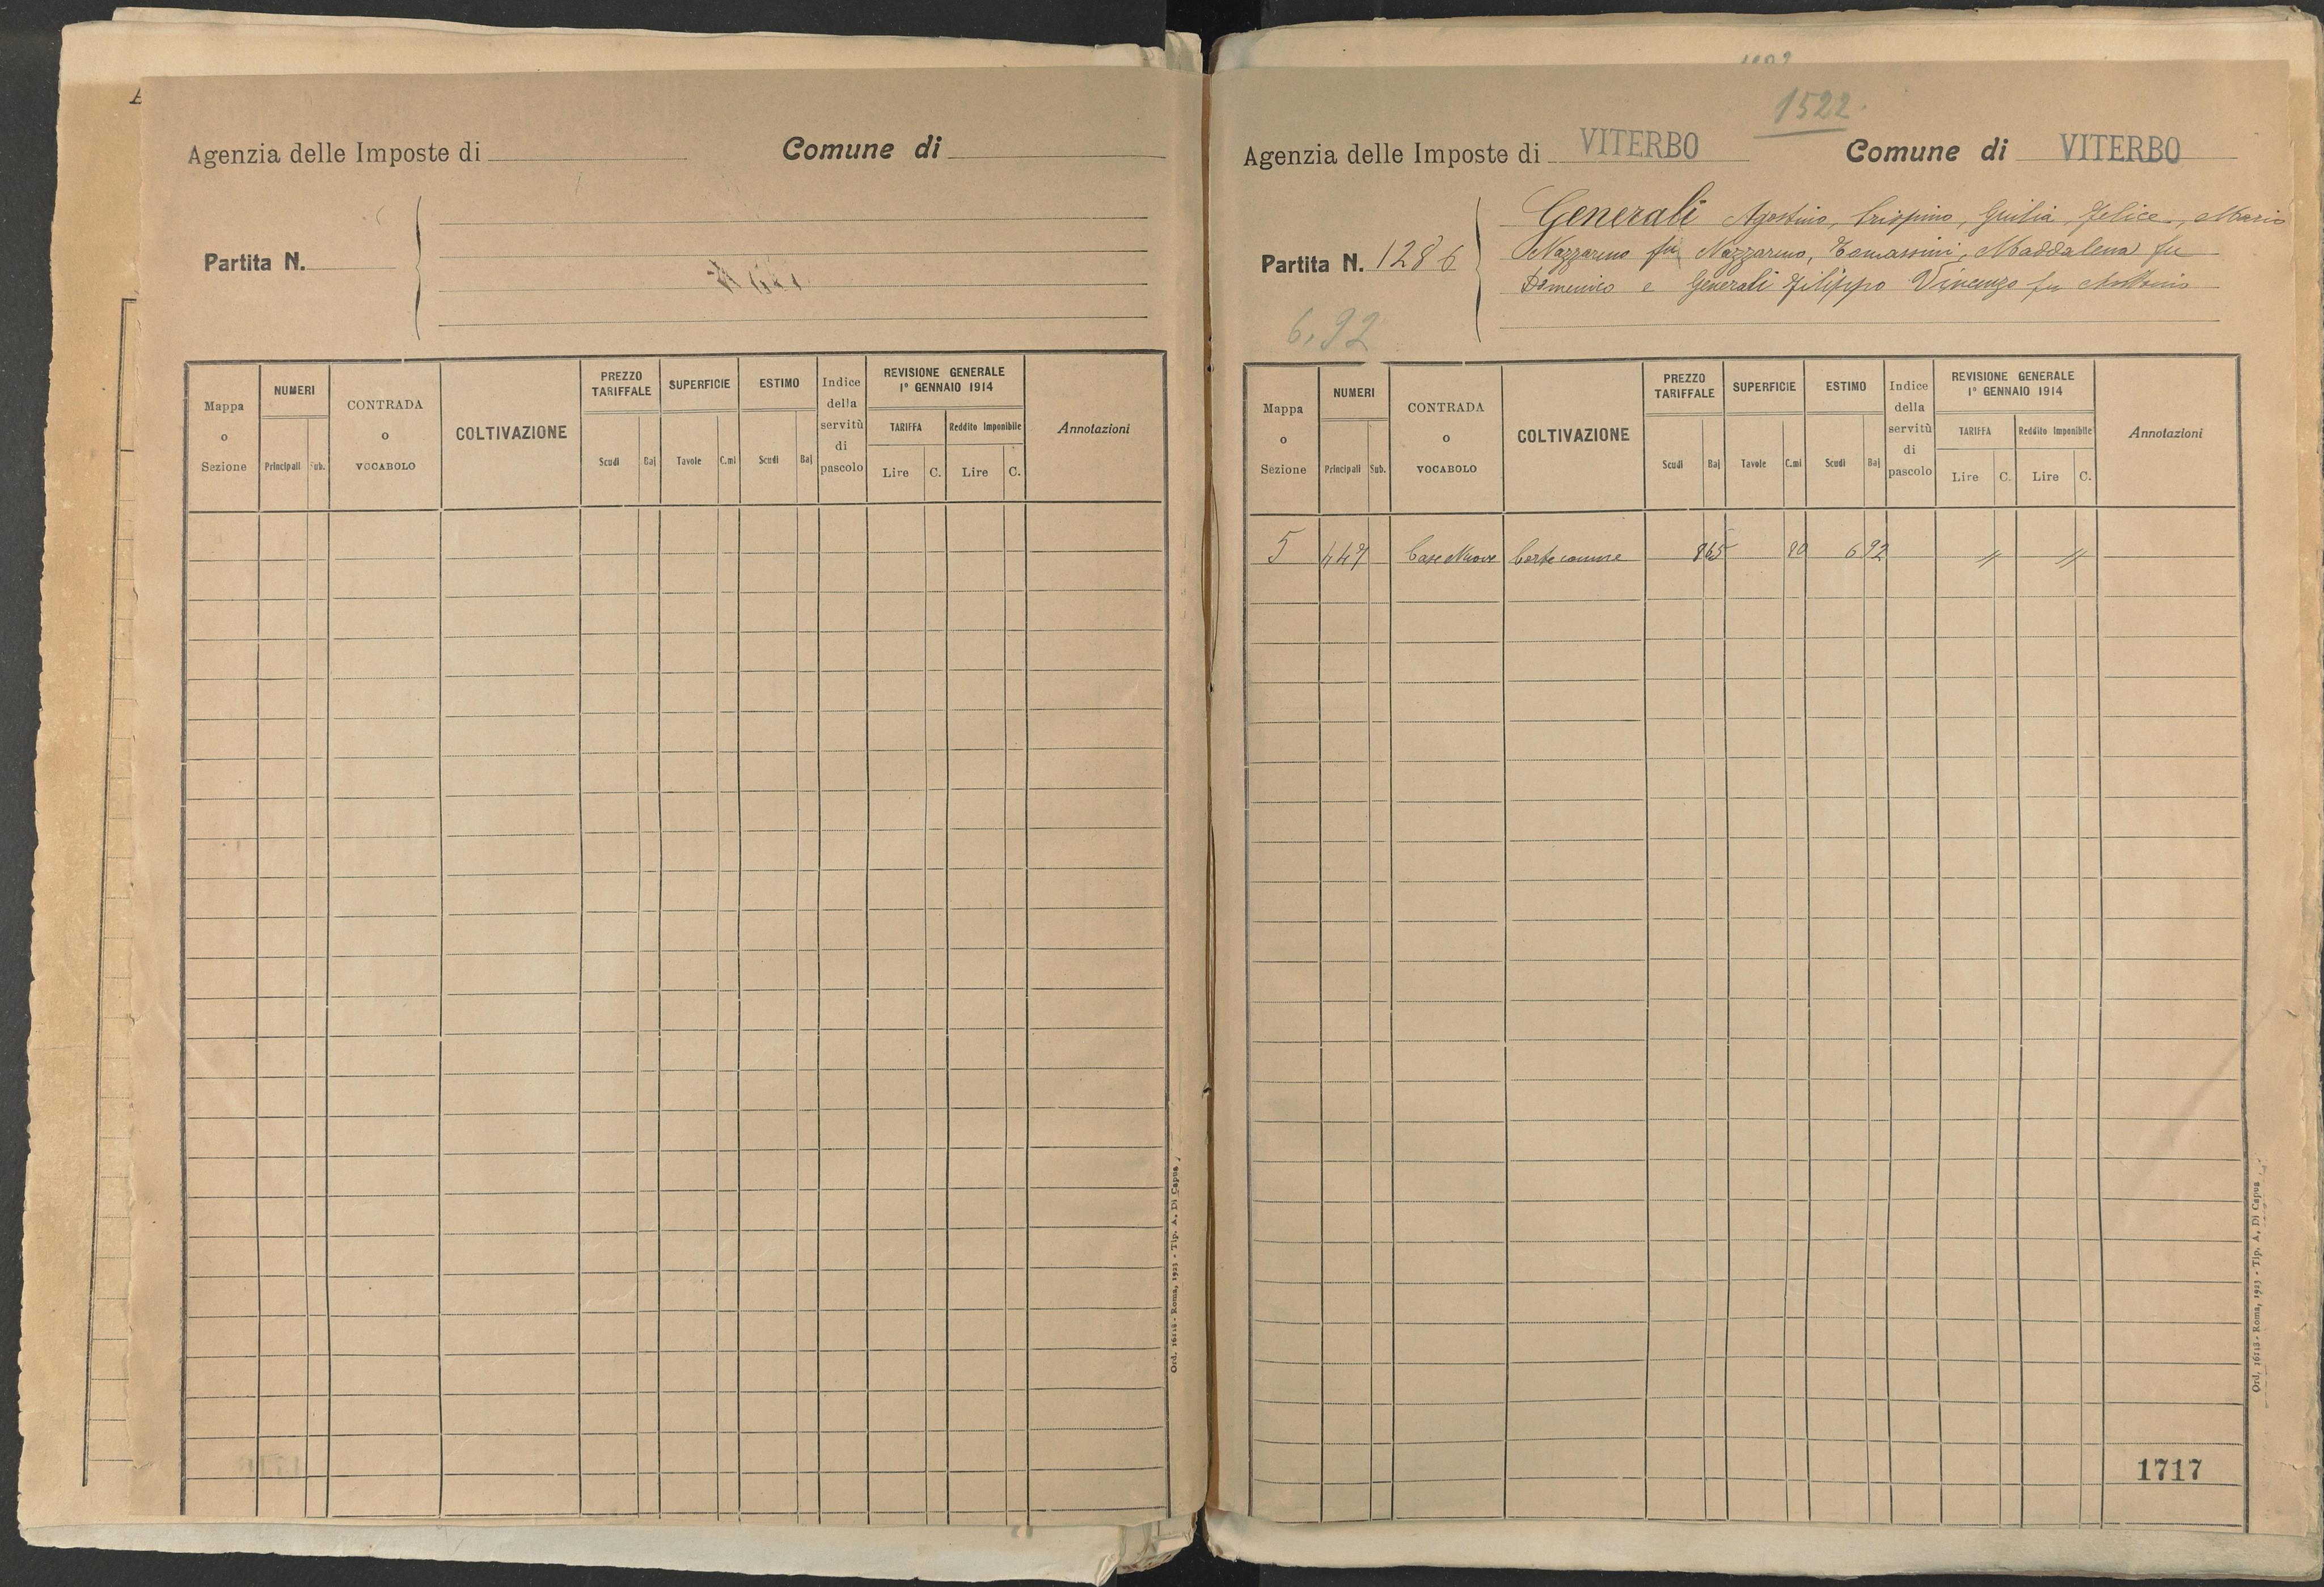 Agenzia delle Imposte di
Comune di
Partita N.
Mappa o Sezione
NUMERI
Principali
Sub.
CONTRADA o VOCABOLO
COLTIVAZIONE
PREZZO TARIFFALE
Scudi
Baj
SUPERFICIE
Tavole
C.mi
ESTIMO
Scudi
Baj
Indice della servitù di pascolo
REVISIONE GENERALE
1° GENNAIO 1914
TARIFFA
Reddito Imponibile
Lire
C.
Lire
C.
Annotazioni
Ord. 16118 - Roma, 1923 - Tip. A. Di Capua
1522.
Agenzia delle Imposte di VITERBO
Comune di VITERBO
Partita N. 1286
Generali Agostino, Crispino, Giulia, Felice, Mario
Nazzareno fu Nazzareno, Tomassini, Maddalena fu
Domenico e Generali Filippo Vincenzo fu Antonio
6,92
Mappa o Sezione
NUMERI
Principali
Sub.
CONTRADA o VOCABOLO
COLTIVAZIONE
PREZZO TARIFFALE
Scudi
Baj
SUPERFICIE
Tavole
C.mi
ESTIMO
Scudi
Baj
Indice della servitù di pascolo
REVISIONE GENERALE
1° GENNAIO 1914
TARIFFA
Reddito Imponibile
Lire
C.
Lire
C.
Annotazioni
5 447 Case Nuove Corte comune 865 80 6 92 // //
1717
Ord. 16118 - Roma, 1923 - Tip. A. Di Capua